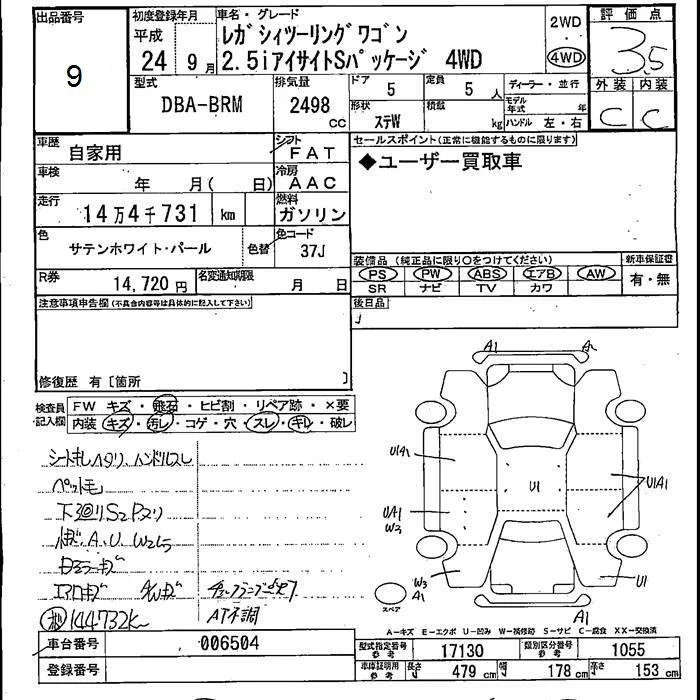 出品番号
9
初度登録年月
平成
24 9月
車名・グレード
レガシィツーリングワゴン
2.5iアイサイトSパッケージ 4WD
2WD
4WD
評価点
3.5
外装 内装
C C
型式
DBA-BRM
排気量
2498
cc
ドア
5
定員
5人
形状
ステW
積載
kg
ディーラー・並行
モデル年式 年
ハンドル 左・右
車歴
自家用
シフト
FAT
車検
年 月( 日)
冷房
AAC
走行
14万4千731 km
燃料
ガソリン
色
サテンホワイト・パール
色替
色コード
37J
R券
14,720円
名変通知期限
月 日
セールスポイント(正常に機能するものに限ります)
◆ユーザー買取車
装備品(純正品に限り○をつけてください)
PS PW ABS エアB AW
SR ナビ TV カワ
新車保証書
有・無
後日品
注意事項申告欄(不具合内容等は具体的に記入して下さい)
修復歴 有〔箇所 〕
検査員記入欄
FW キズ・飛石・ヒビ割・リペア跡・×要
内装 キズ・汚レ・コゲ・穴・スレ・キレ・破レ
ペット毛
下廻りS2
A.U W2
144732K
AT不調
A1
U1A1
UA1
W3
U1
U1A1
W3
A1
U1
A1
スペア
A-キズ E-エクボ U-凹み W-補修跡 S-サビ C-腐食 XX-交換済
車台番号
006504
登録番号
型式指定番号
参考
17130
類別区分番号
参考
1055
車庫証明用
参考
長さ 479cm 幅 178cm 高さ 153cm